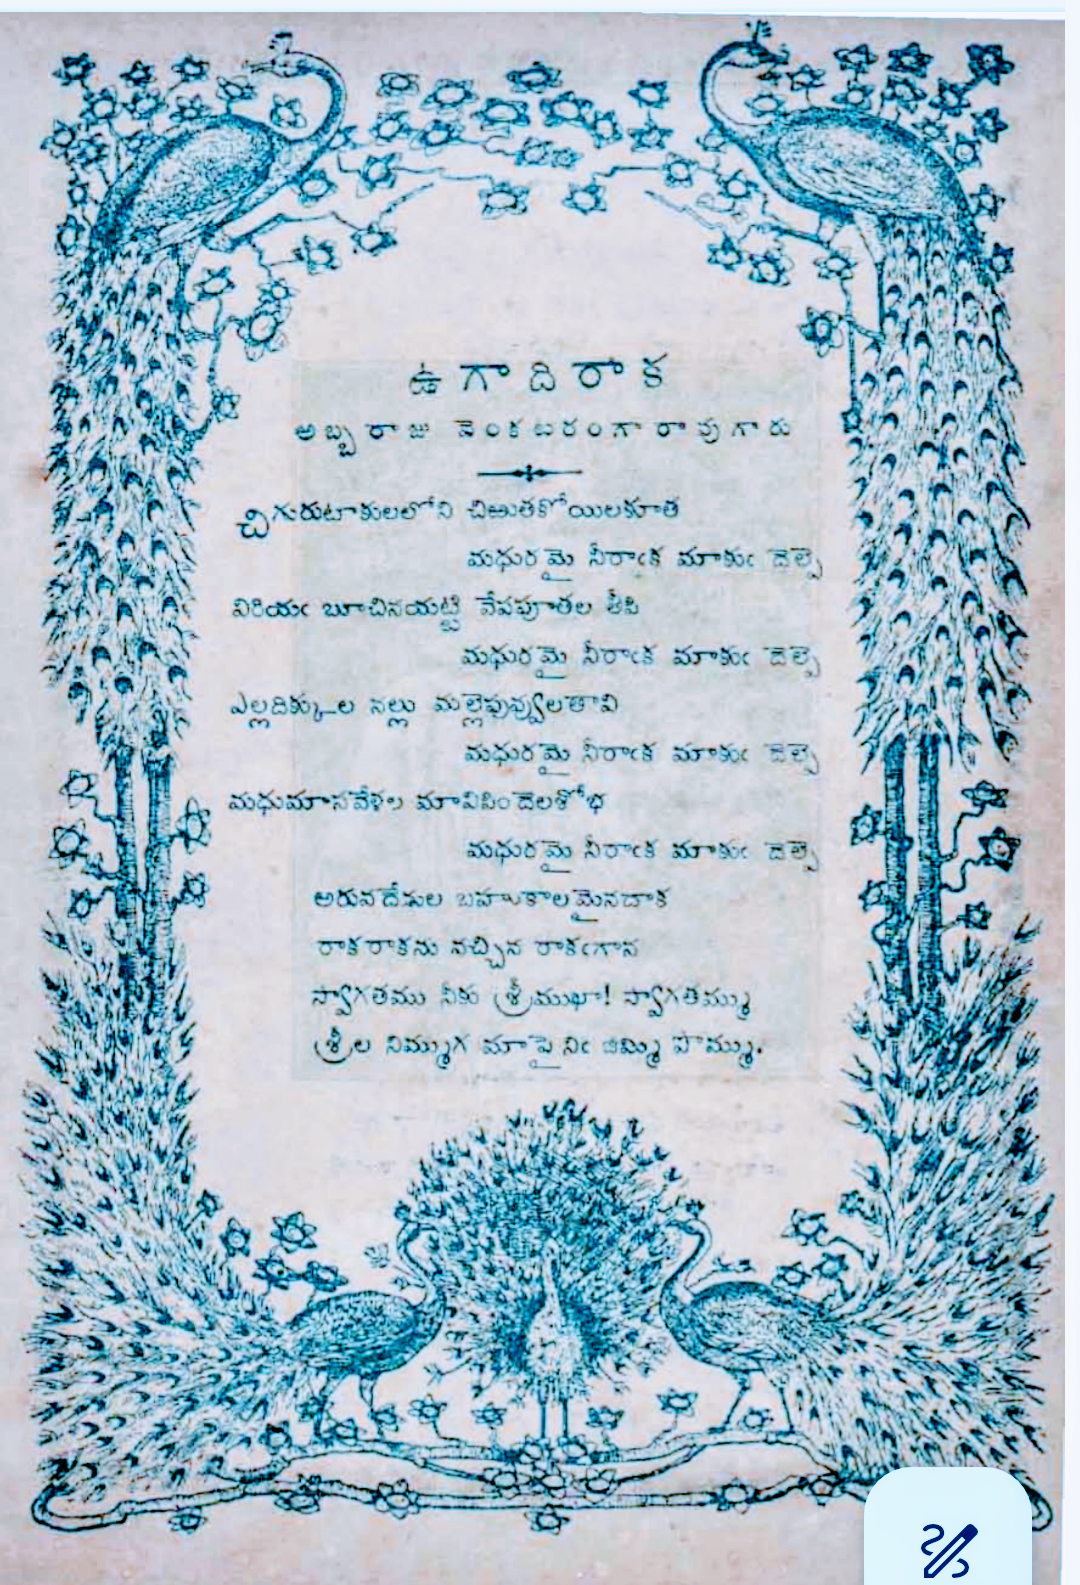 ఉగాదిరాక
అబ్బరాజు వెంకటరంగారావుగారు
చిగురుటాకులలోని చిఱుతకోయిలకూత
మధురమై నీరాఁక మాకుఁ దెల్పె
విరియఁ బూచినయట్టి వేపపూతల తీపి
మధురమై నీరాఁక మాకుఁ దెల్పె
ఎల్లదిక్కుల నల్లు మల్లెపువ్వులతావి
మధురమై నీరాఁక మాకుఁ దెల్పె
మధుమాసవేళల మావిపిందెలశోభ
మధురమై నీరాఁక మాకుఁ దెల్పె
అరువదేఁడుల బహుకాలమైనదాక
రాకరాకను వచ్చిన రాకఁగాన
స్వాగతము నీకు శ్రీముఖా! స్వాగతమ్ము
శ్రీల నిమ్ముగ మాపై నిఁ జిమ్మి పొమ్ము.